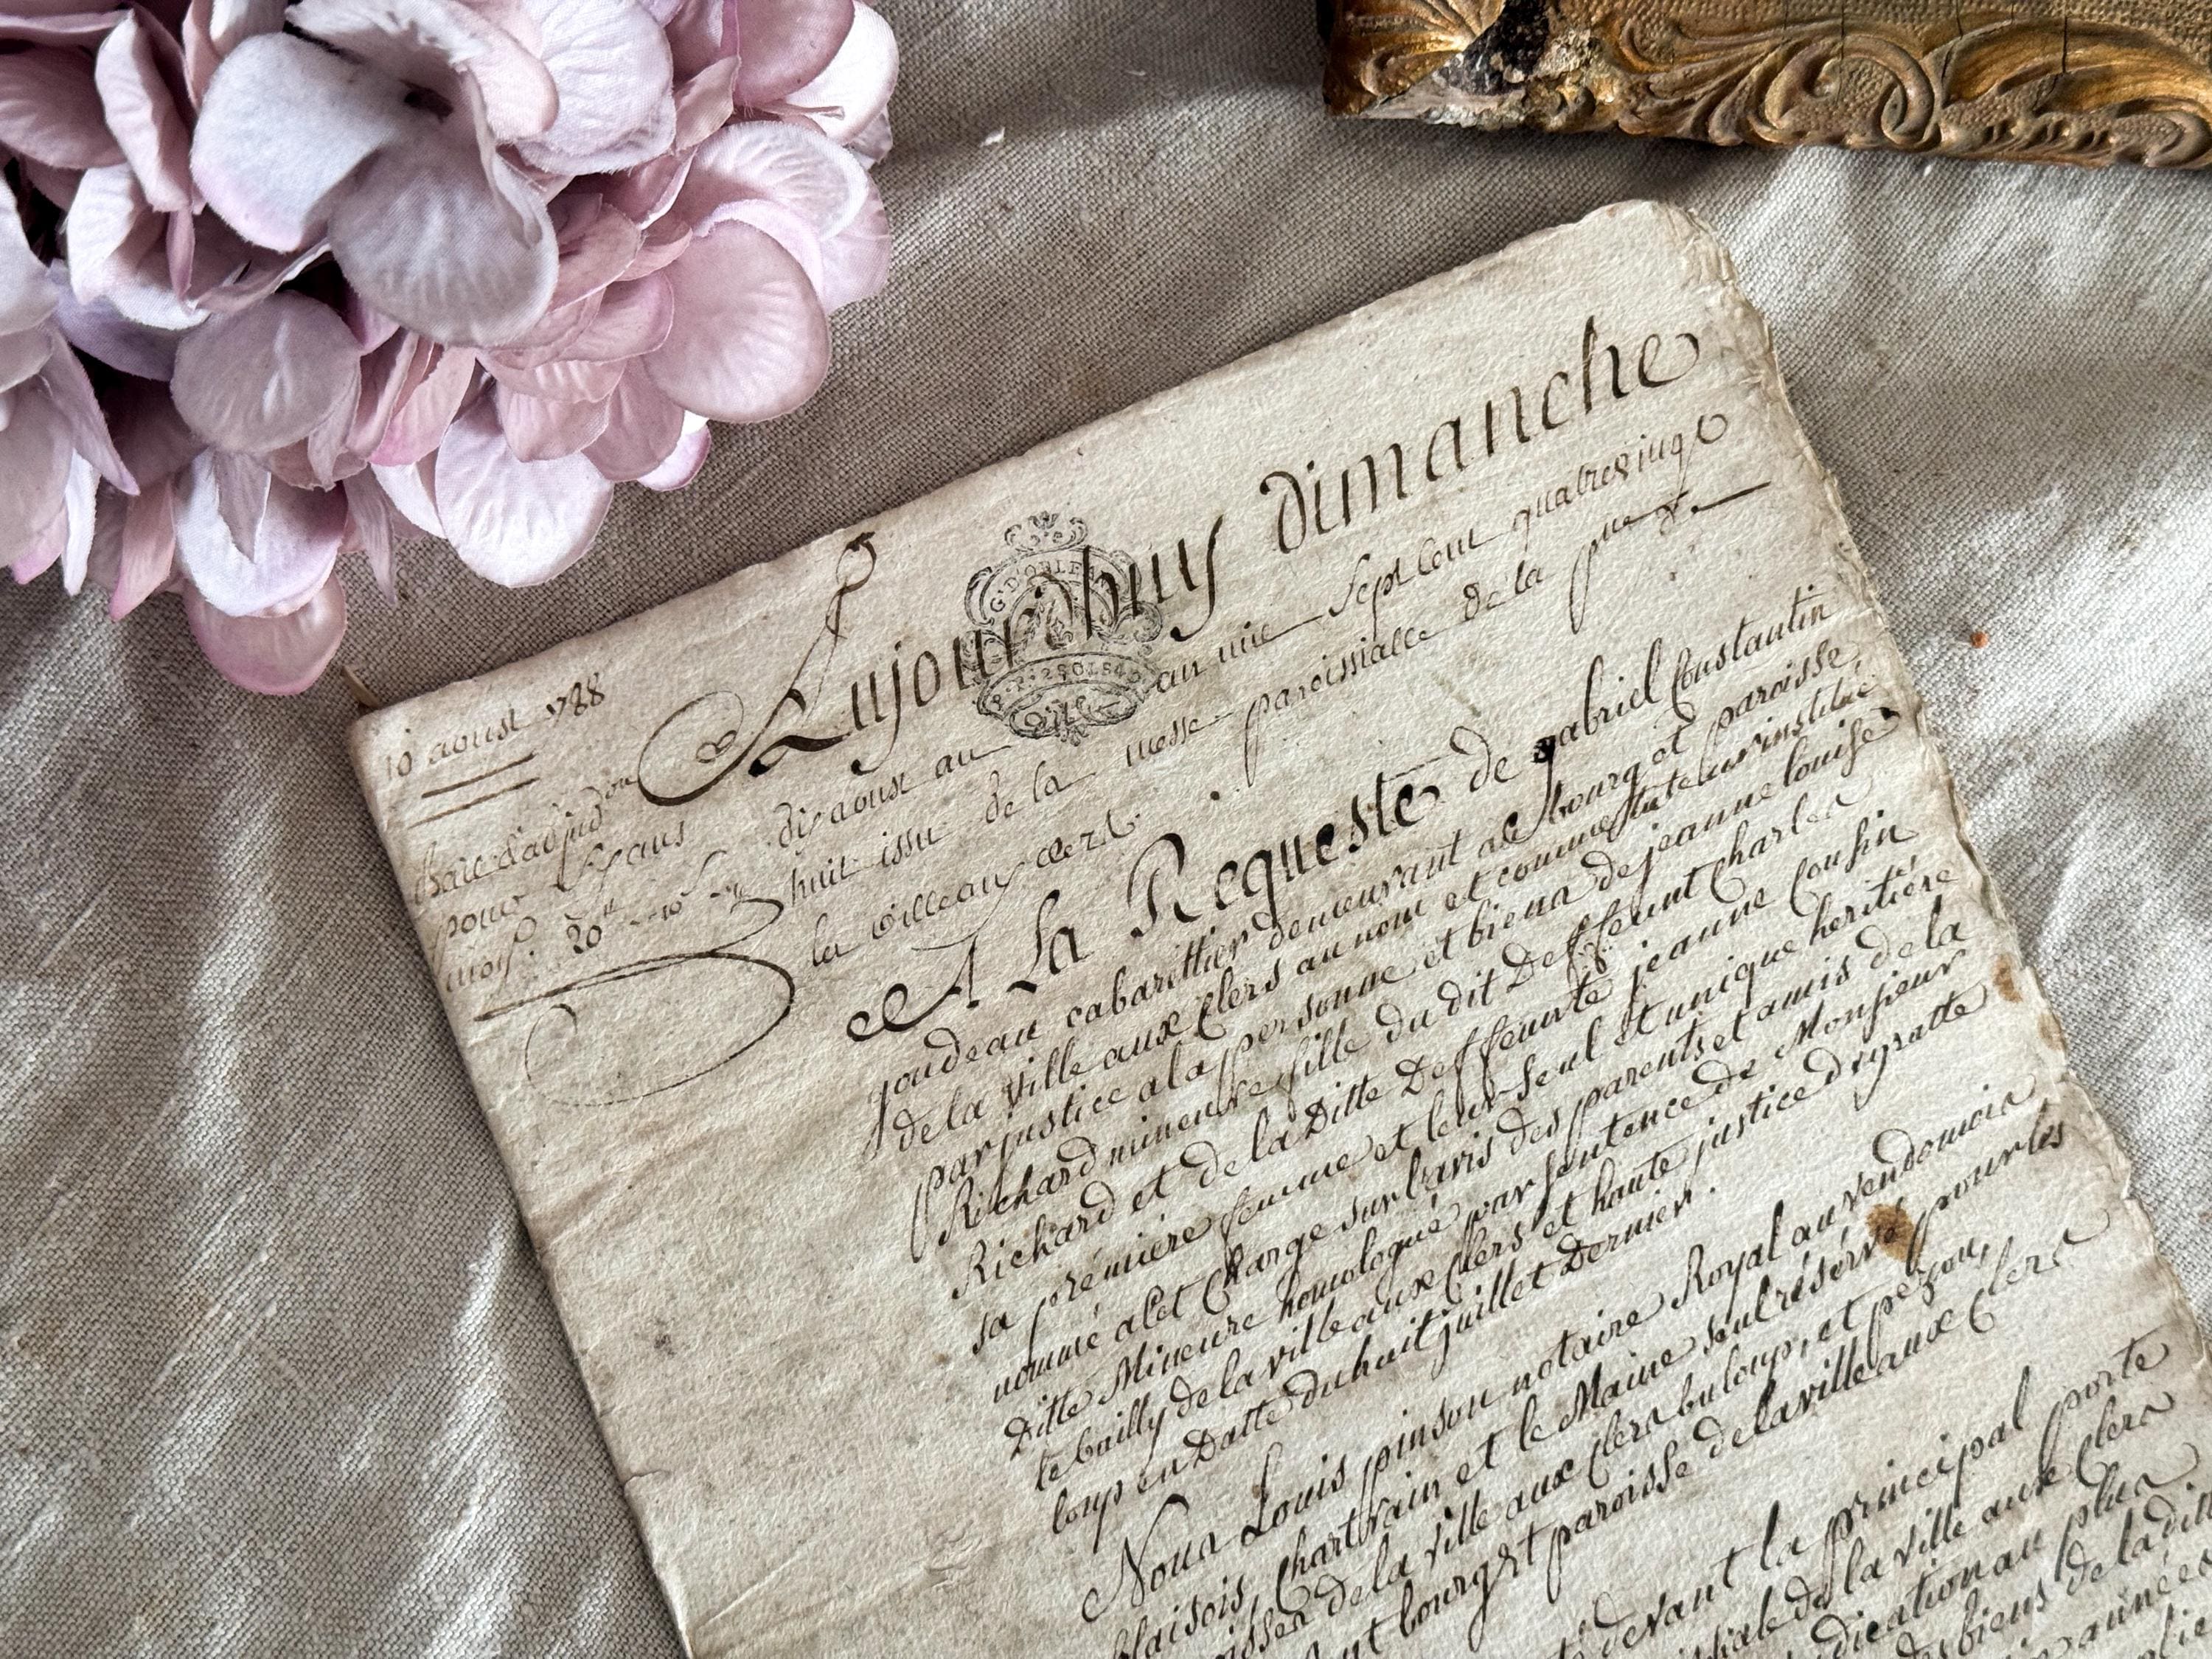 10 aoust 1788
Bail d'adjud.on
pour
moy.
Aujourd'huy dimanche
dix aoust au an mil sept cent quatre vingt
huit issu de la messe paroissialle de la
la ville aux clers.
A La Requeste de gabriel Constantin
joudeau cabarettier demeurant au bourg et paroisse
de la Ville aux Clers au nom et comme tuteur institué
par justice a la personne et biens de jeanne louise
Richard mineure fille du dit Deffeunt Charles
Richard et de la Ditte Deffeunte jeanne Cousin
sa prémiere femme et leur seul et unique heritière
nommé a cet Charge sur l'avis des parents et amis de la
Ditte Mineure homologué par sentence de Monsieur
le bailly de la ville aux Clers et haute justice
loup en Datte du huit juillet Dernier.
Nous Louis pinson notaire Royal au vendomois,
blaisois, Chartrain et le Maine seul réservé pour les
de la ville aux Clers buloup, et pezou,
bourg et paroisse de la ville aux Clers
devant la principal porte
de la ville aux Clers
au plus
biens de la ditte
années